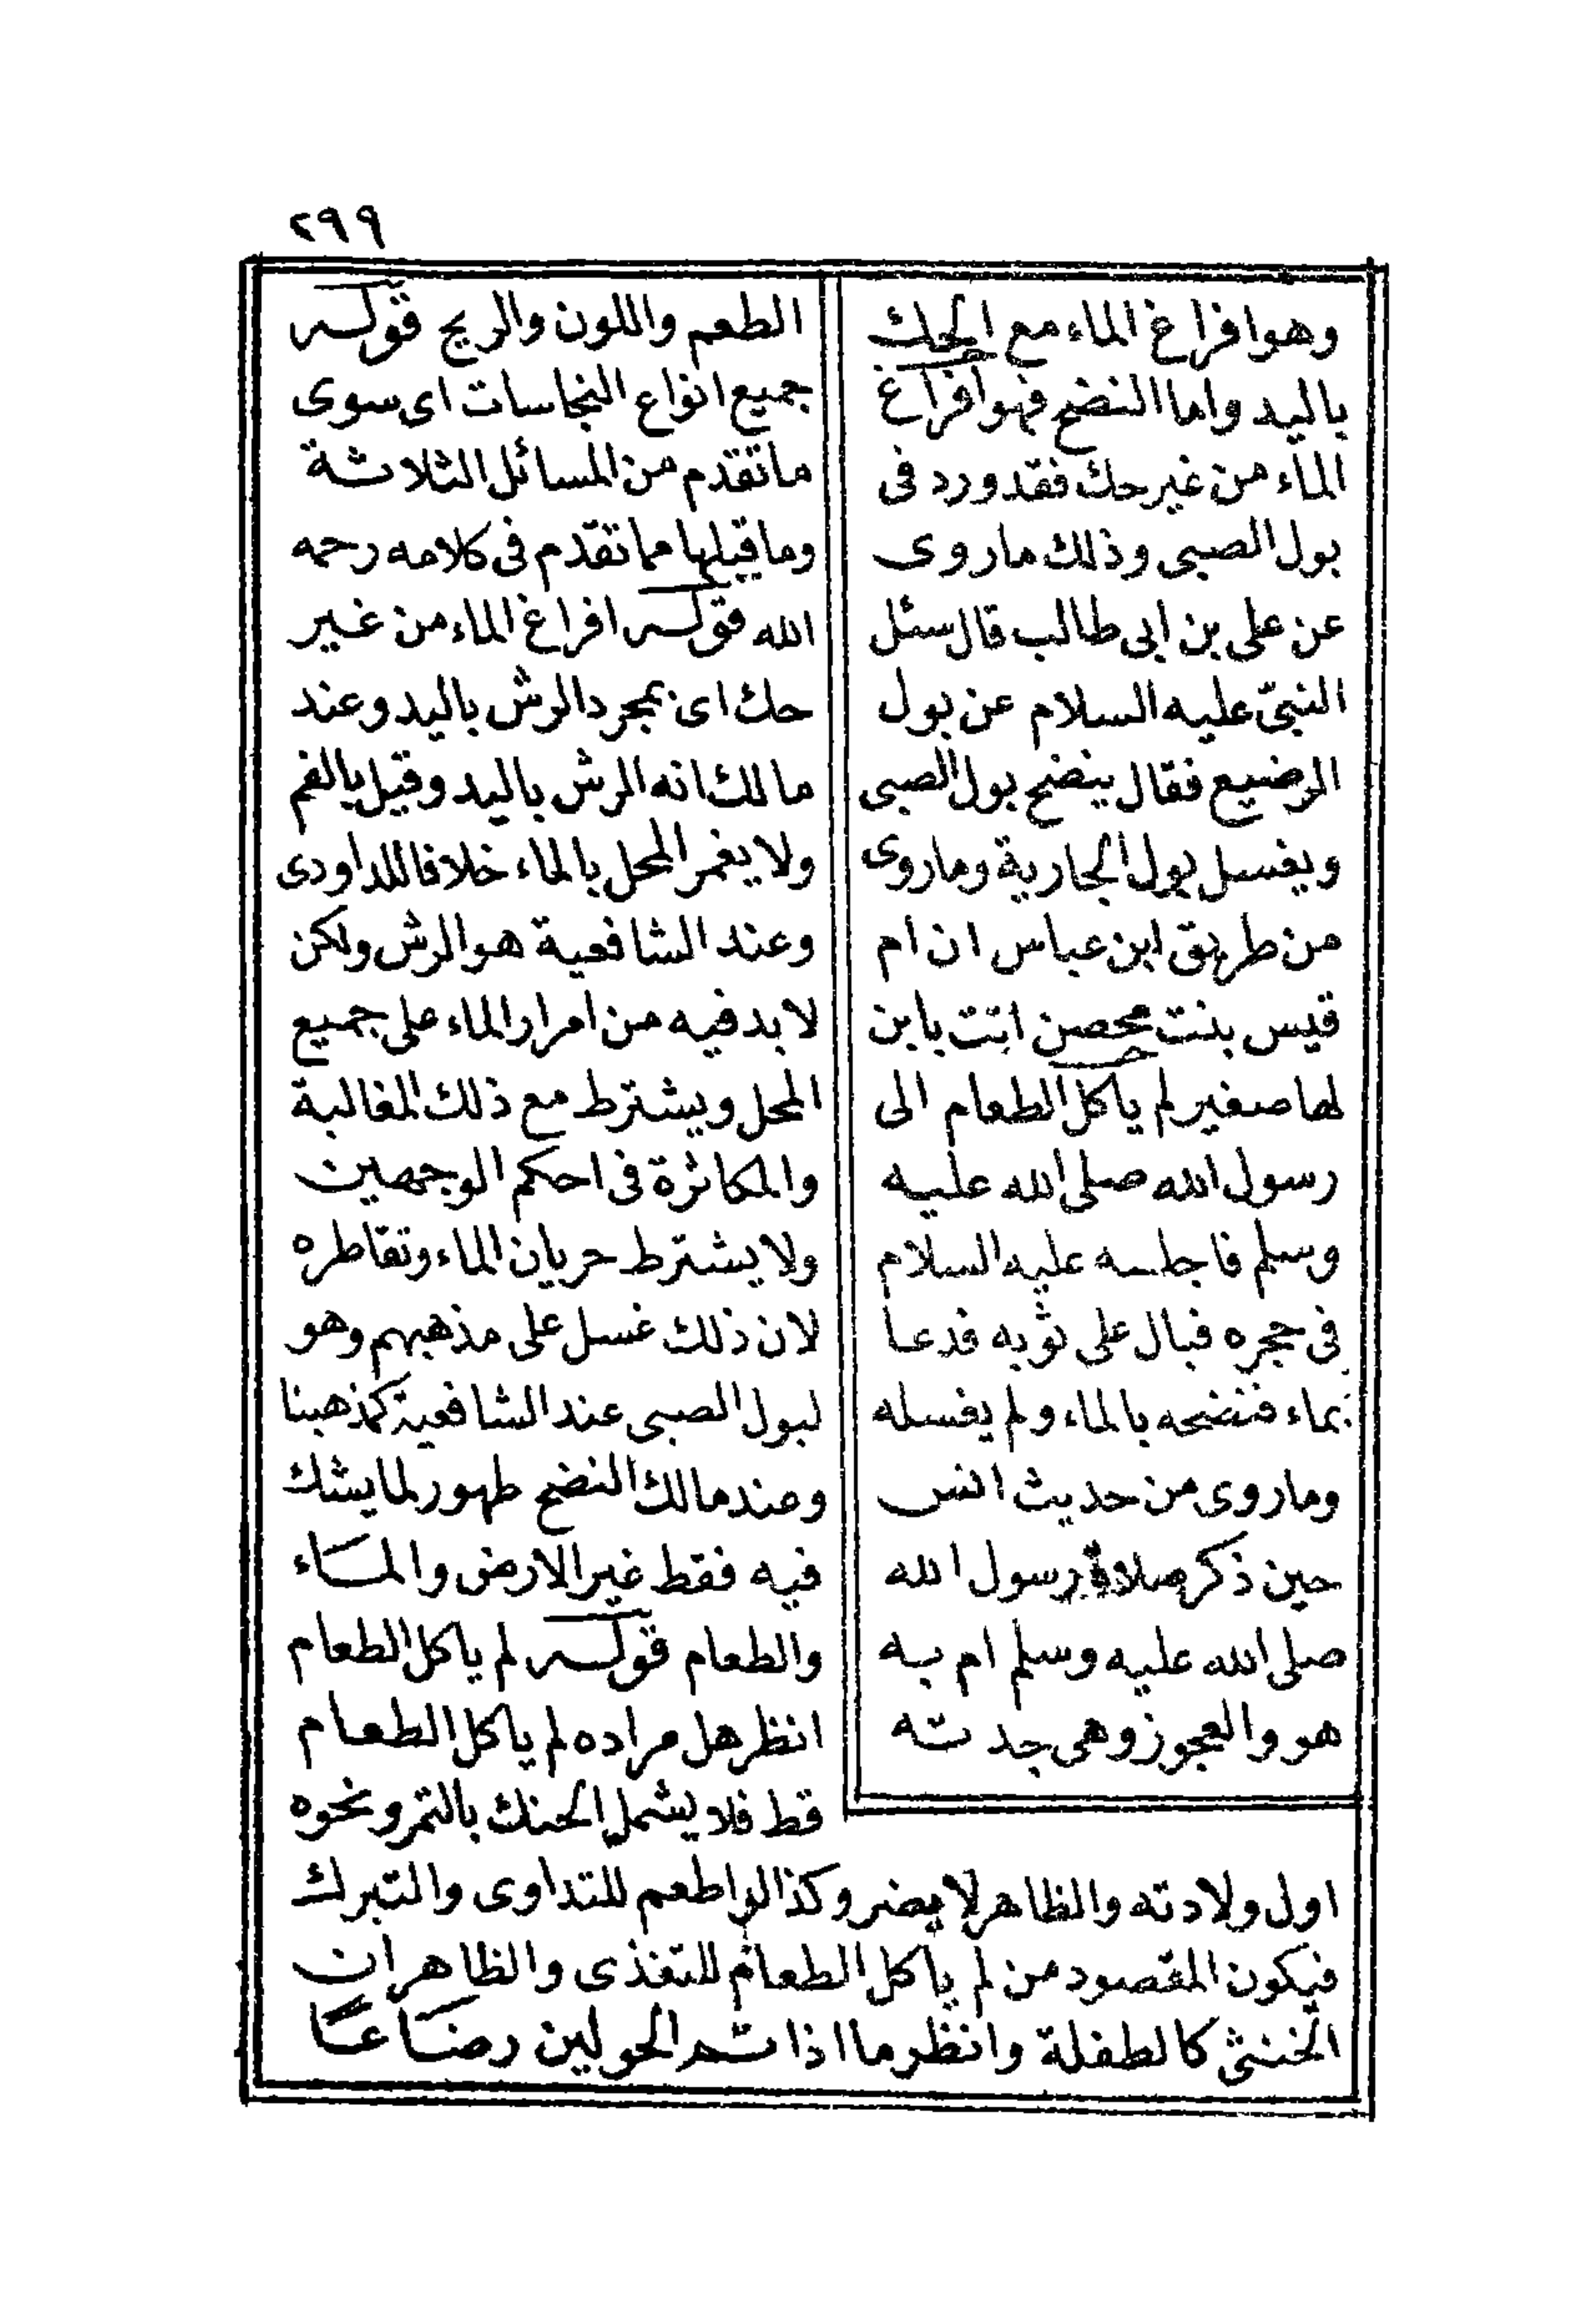 ٢٩٩
وهو افراغ الماء مع الحك
باليد واما النضح فهو افراغ
الماء من غير حك فقد ورد فى
بول الصبى وذلك ما روى
عن على بن ابى طالب قال سئل
النبىّ عليه السلام عن بول
الرضيع فقال ينضح بول الصبى
ويغسل بول الجارية وما روى
من طريق ابن عباس ان ام
قيس بنت محصن اتت بابن
لها صغير لم ياكل الطعام الى
رسول الله صلى الله عليه
وسلم فاجلسه عليه السلام
فى حجره فبال على ثوبه فدعا
بماء فنضحه بالماء ولم يغسله
وما روى من حديث انس
حين ذكر صلاة رسول الله
صلى الله عليه وسلم ام به
هو والعجوز وهى جدته
الطعم واللون والريح قوله
جميع انواع النجاسات اى سوى
ما تقدم من المسائل الثلاثة
وما قبلها مما تقدم فى كلامه رحمه
الله قوله افراغ الماء من غير
حك اى بمجرد الرش باليد وعند
مالك انه الرش باليد وقيل بالفم
ولا يغمر المحل بالماء خلافا للداودى
وعند الشافعية هو الرش ولكن
لا بد فيه من امرار الماء على جميع
المحل ويشترط مع ذلك المغالبة
والمكاثرة فى احكم الوجهين
ولا يشترط جريان الماء وتقاطره
لان ذلك غسل على مذهبهم وهو
لبول الصبى عند الشافعية كمذهبنا
وعند مالك النضح طهور لما يشك
فيه فقط غير الارض والماء
والطعام قوله لم ياكل الطعام
انظر هل مراده لم ياكل الطعام
قط فلا يشمل الحنك بالتمر ونحوه
اول ولادته والظاهر لا يضر وكذا لو اطعم للتداوى والتبرك
فيكون المقصود من لم ياكل الطعام للتغذى والظاهر ان
الخنثى كالطفلة وانظر ما اذا تم الحولين رضاعًا